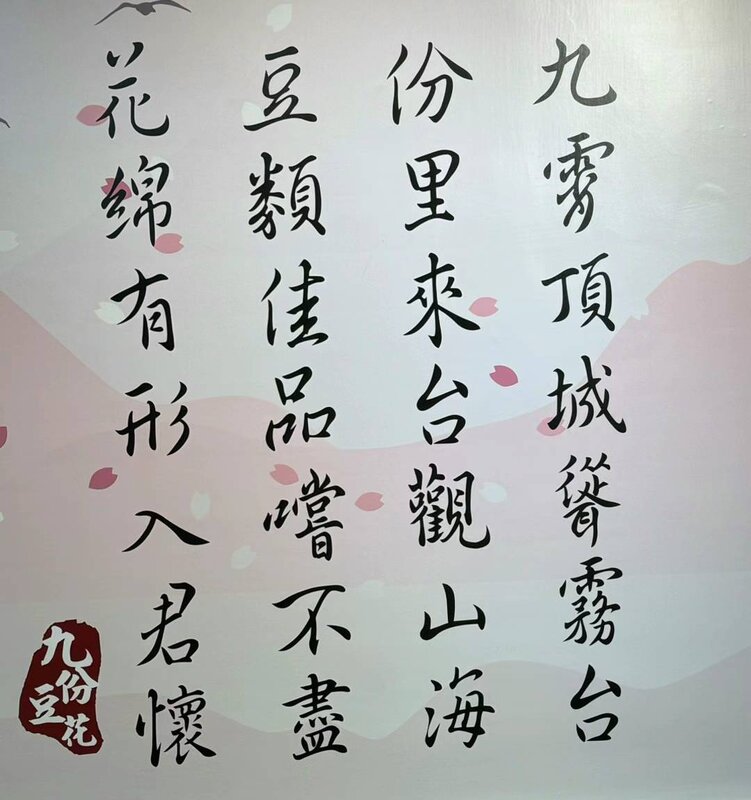 九霄頂城聳霧台
份里來台觀山海
豆類佳品嚐不盡
花綿有形入君懷
九份豆花